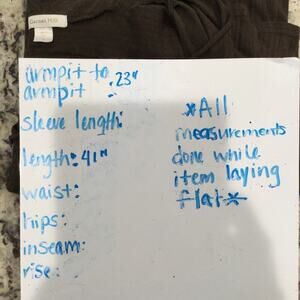 Garnet Hill
armpit to
armpit : 23"
sleeve length:
length: 41"
waist:
hips:
inseam:
rise:
*All
measurements
done while
item laying
flat*